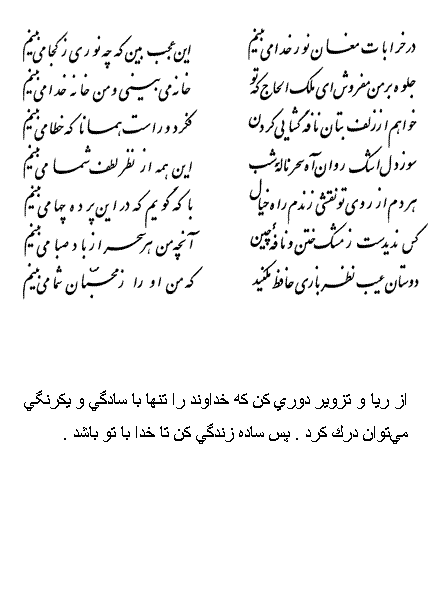 در خرابات مغان نور خدا می بینم
این عجب بین که چه نوری ز کجا می بینم
جلوه بر من مفروش ای ملک الحاج که تو
خانه می بینی و من خانه خدا می بینم
خواهم از زلف بتان نافه گشایی کردن
فکر دور است همانا که خطا می بینم
سوز دل اشک روان آه سحر ناله شب
این همه از نظر لطف شما می بینم
هر دم از روی تو نقشی زندم راه خیال
با که گویم که در این پرده چها می بینم
کس ندیدست ز مشک ختن و نافه چین
آنچه من هر سحر از باد صبا می بینم
دوستان عیب نظربازی حافظ مکنید
که من او را ز محبّان شما می بینم
از ريا و تزوير دوري كن كه خداوند را تنها با سادگي و يكرنگي
مي‌توان درك كرد . پس ساده زندگي كن تا خدا با تو باشد .